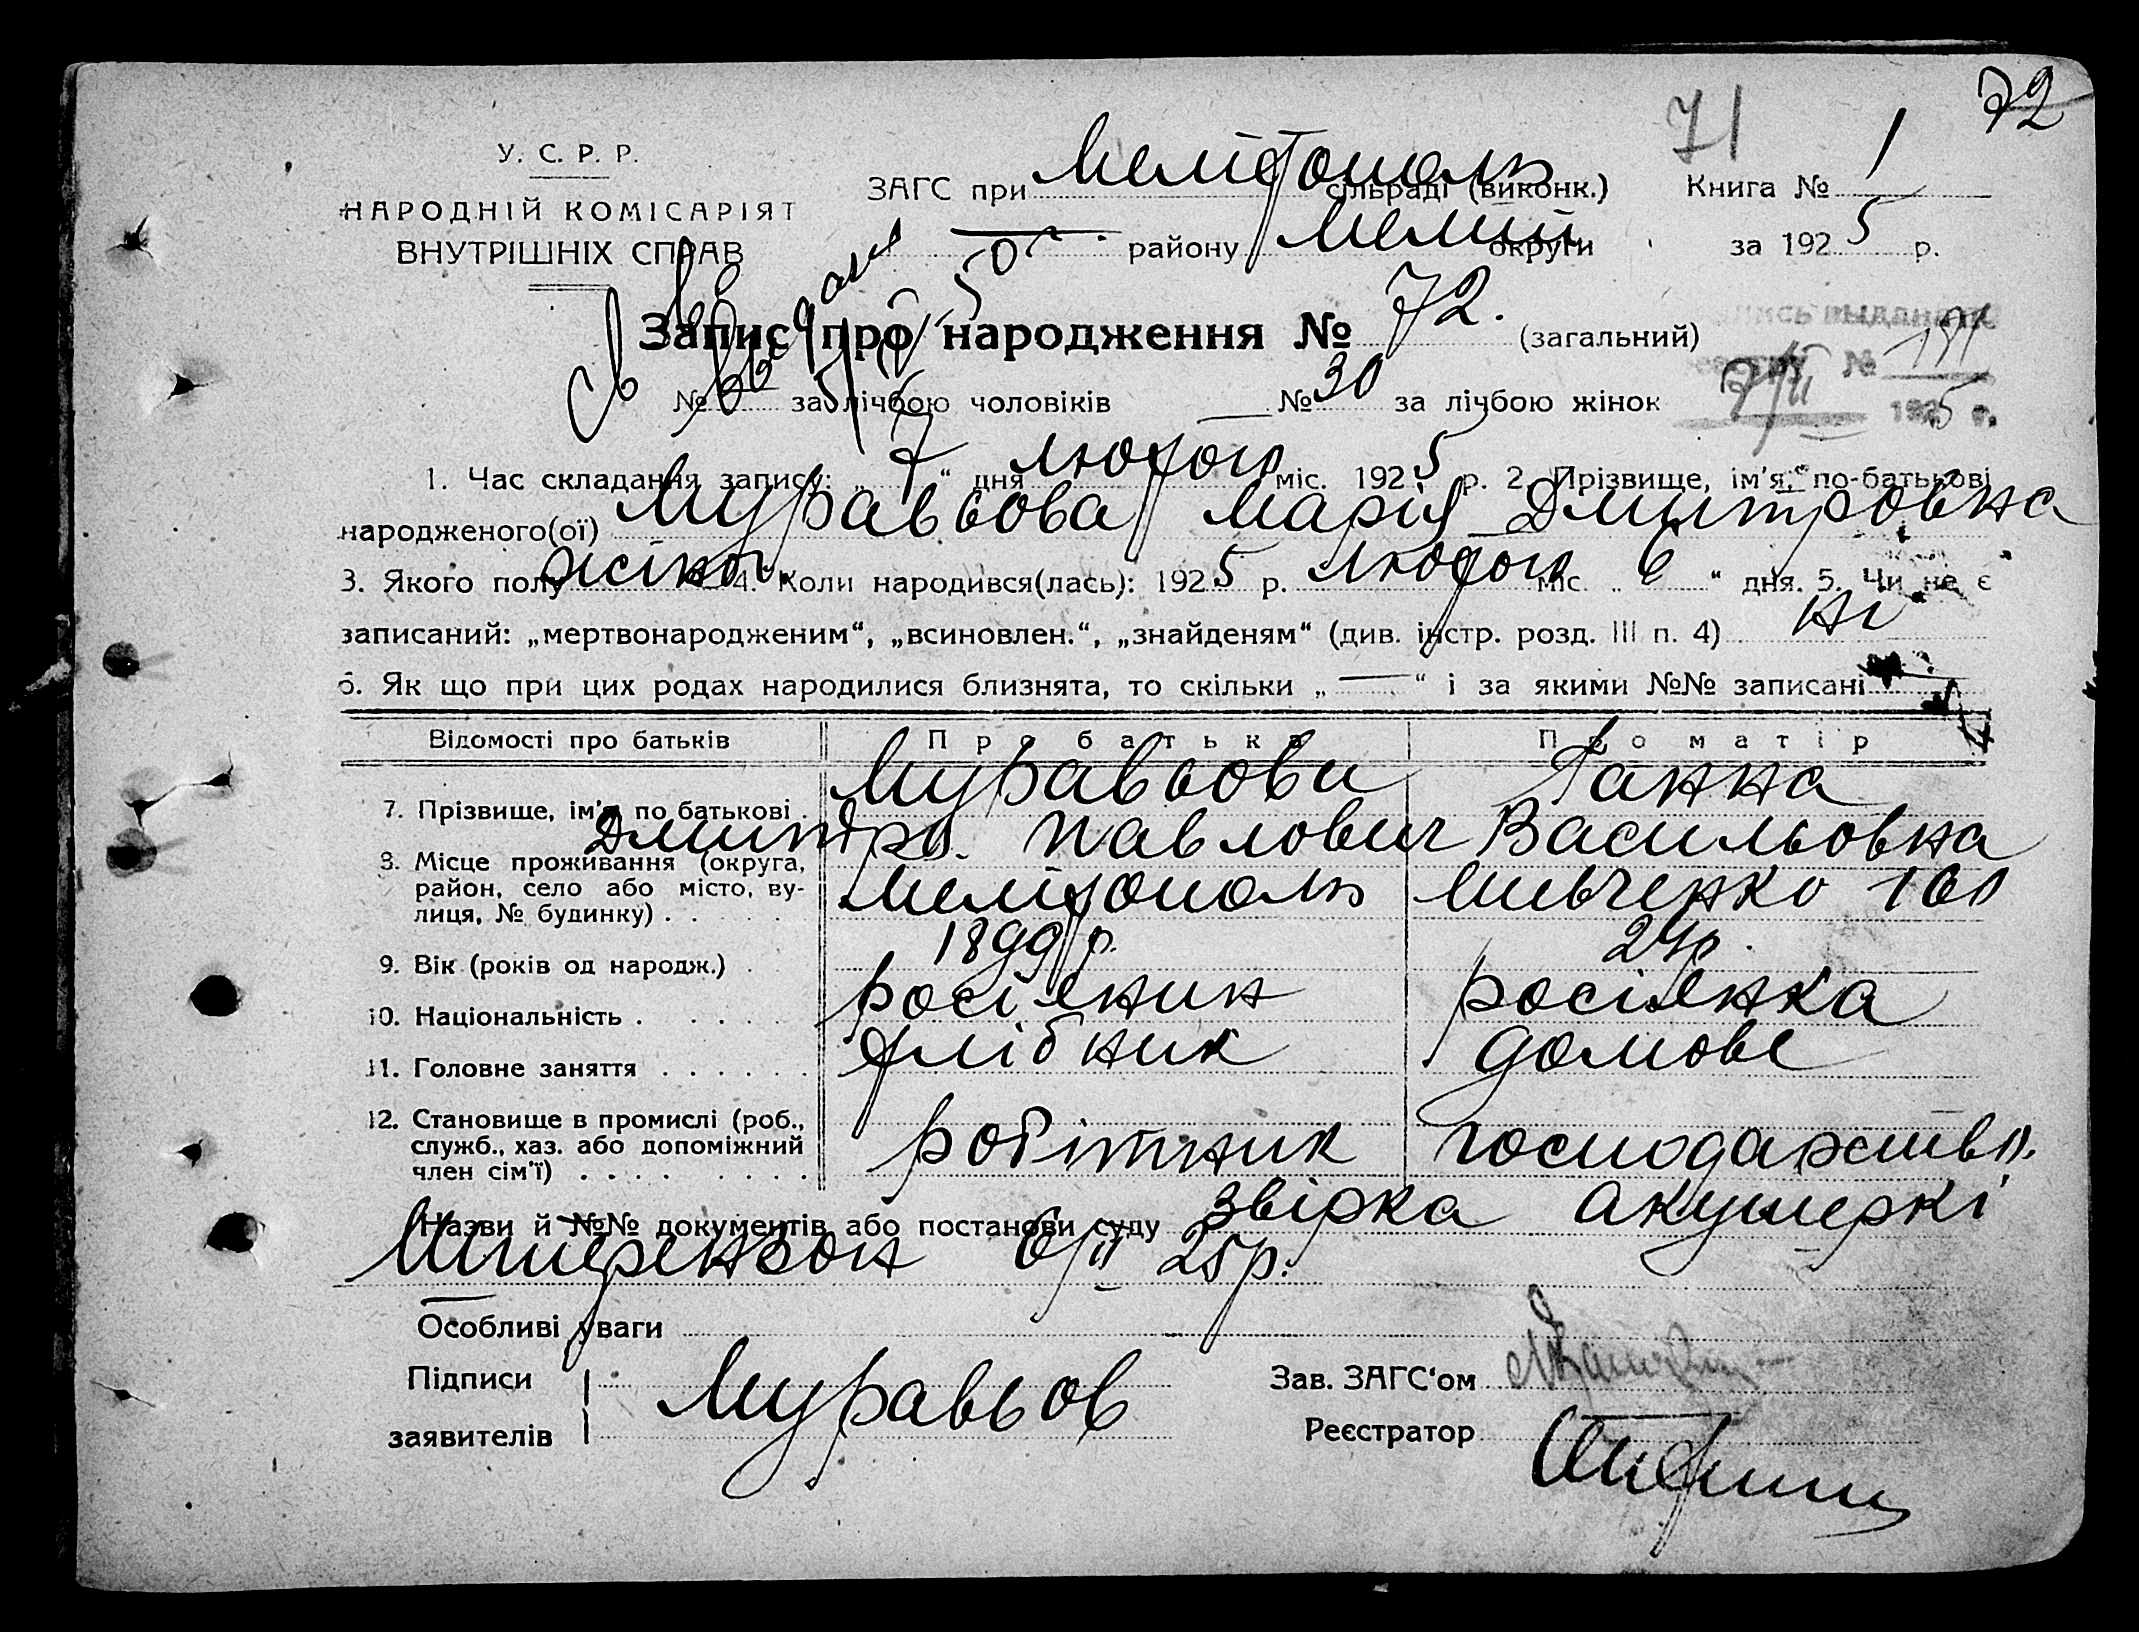 71
72
У. С. Р. Р.
НАРОДНІЙ КОМІСАРІЯТ
ВНУТРІШНІХ СПРАВ
ЗАГС при Мелітополь сільраді (виконк.) Книга № 1
району Меліт округи за 1925 р.
Запис про народження № 72. (загальний)
№ за лічбою чоловіків № 30 за лічбою жінок
7/II 1925 г.
1. Час складання запису: „7“ дня лютого міс. 1925 р. 2. Прізвище, ім'я, по-батькові
народженого(ої) Муравьова Марія Дмитровна
3. Якого полу жіноч. 4. Коли народився(лась): 1925 р. лютого міс. „6“ дня. 5. Чи не є
записаний: „мертвонародженим“, „всиновлен.“, „знайденям“ (див. інстр. розд. III п. 4) ні
6. Як що при цих родах народилися близнята, то скільки „—“ і за якими №№ записані —
Відомості про батьків Про батька Про матір
7. Прізвище, ім'я, по батькові Муравьови Ганна
Дмитро Павлович Васильовна
8. Місце проживання (округа,
район, село або місто, ву-
лиця, № будинку) Мелітополь Шевченко
9. Вік (років од народж.) 1899 р. 24 р.
10. Національність росіянин росіянка
11. Головне заняття хлібник домове
12. Становище в промислі (роб.,
служб., хаз. або допоміжний
член сім'ї) робітник господарство.
Назви й №№ документів або постанови суду звірка акушеркі
6/II 25 р.
Особливі уваги
Підписи
заявителів Муравьов
Зав. ЗАГС'ом
Реєстратор